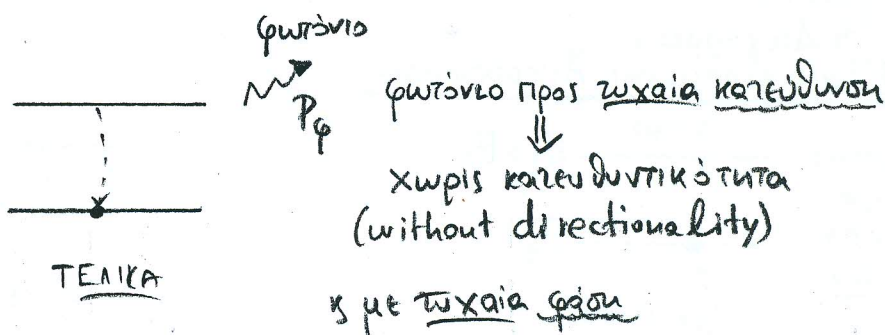 φωτόνιο
P_φ
φωτόνιο προς τυχαία κατεύθυνση
⇓
χωρίς κατευθυντικότητα
(without directionality)
ΤΕΛΙΚΑ
ϗ με τυχαία φάση